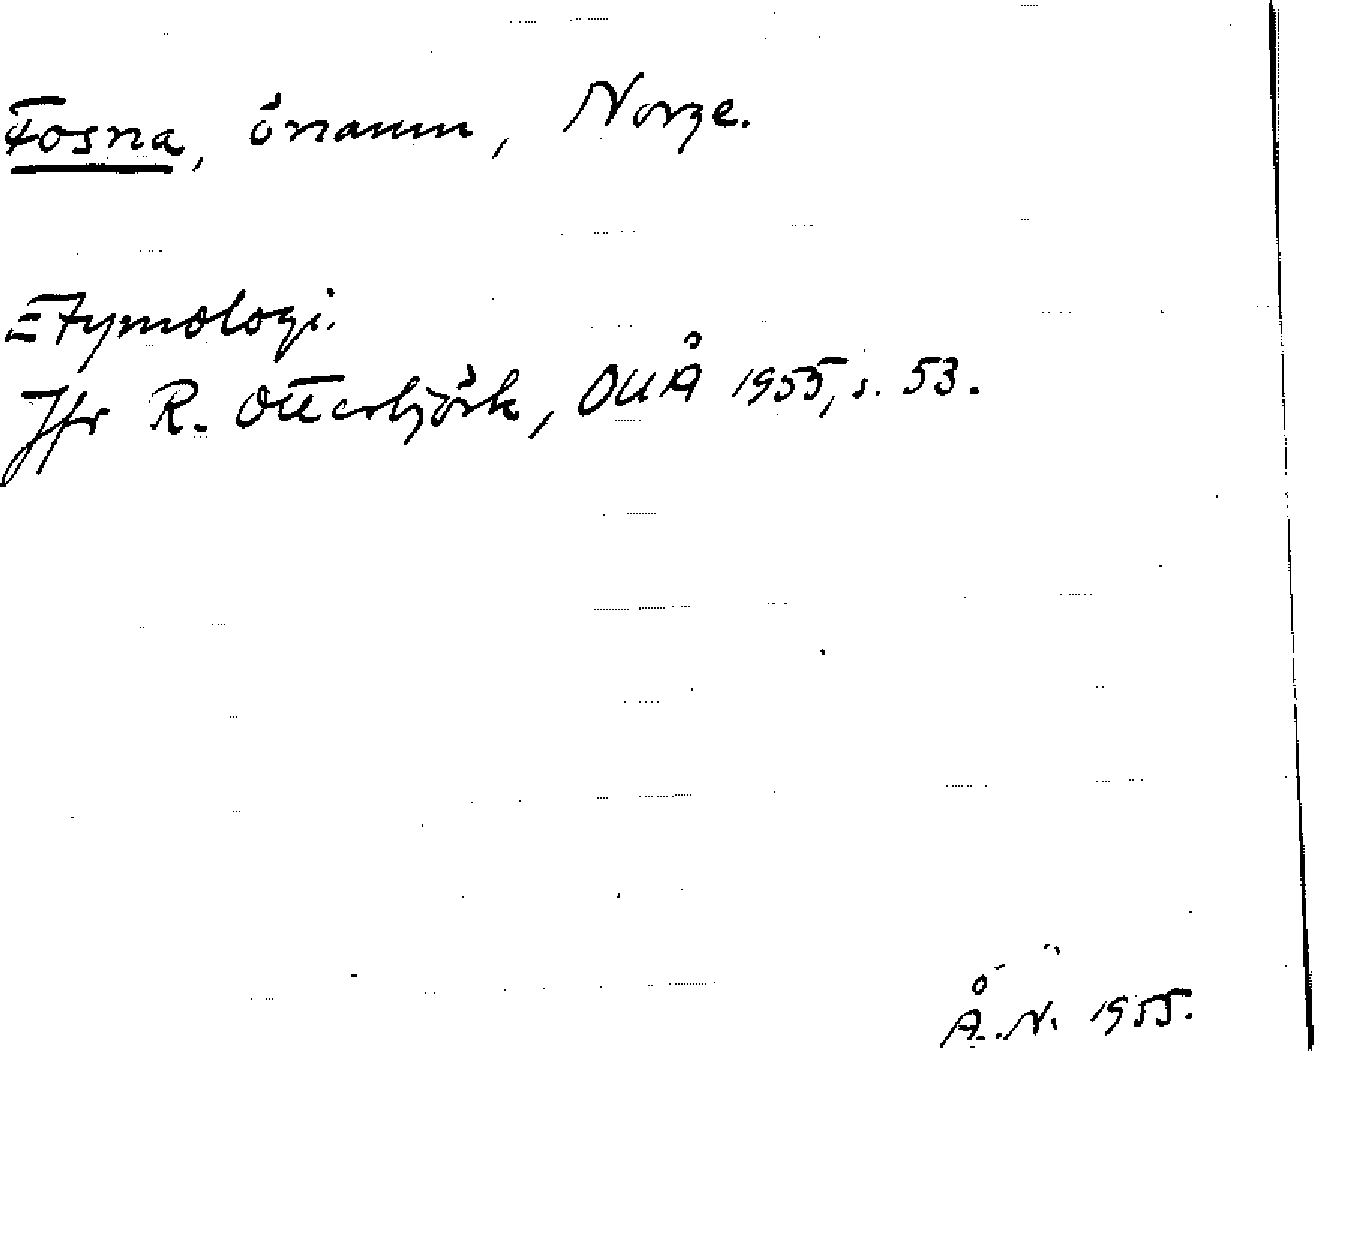 Fosna, önamn, Norge.
Etymologi.
Jfr R. Otterbjörk, OUÅ 1955, s. 53.
Å. N. 1955.